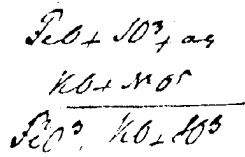 FeO + SO³ + aq
KO + NO⁵
FeO³, KO + SO³